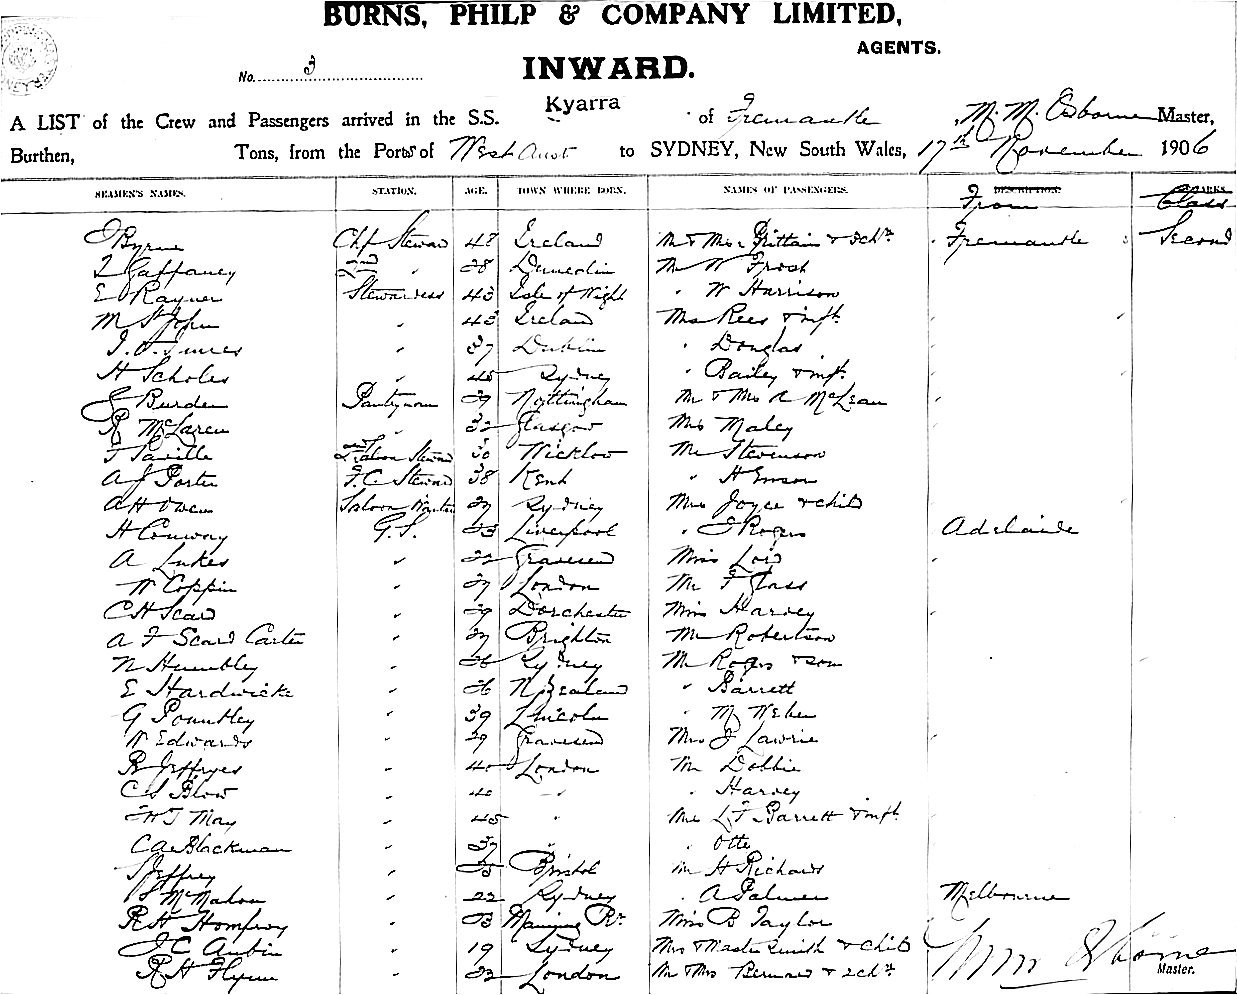 BURNS, PHILP & COMPANY LIMITED,
AGENTS.
No. 3
INWARD.
A LIST of the Crew and Passengers arrived in the S.S. Kyarra of Fremantle, M. M. Osborne Master,
Burthen, Tons, from the Ports of West Aust to SYDNEY, New South Wales, 17th November 1906
SEAMEN'S NAMES. STATION. AGE. TOWN WHERE BORN. NAMES OF PASSENGERS. From Class
J Byrne Chf Steward 48 Ireland Mr & Mrs Brittain & 3 chn Fremantle Second
Gaffaney 2nd " 28 Dunedin Mr W Frost
E Rayner Stewardess 43 Isle of Wight " W Harrison
M St John " 43 Ireland Mrs Rees & inft
" 37 Dublin " Douglas
H Scholes " 45 Sydney " Bailey & inft
J Burden Pantryman 29 Nottingham Mr & Mrs A McLean
R McLaren " 32 Glasgow Mrs Maley
Saville 2nd Saloon Steward 30 Wicklow Mr Stevenson
A J Porter F.C. Steward 38 Kent " H
A H Owen Saloon Waiter 29 Sydney Mrs Joyce & child
H Conway G.S. 23 Liverpool " J Rogers Adelaide
A Lukes " 22 Gravesend Miss
W Coppin " 27 London Mr F Glass
C H Scard " 29 Dorchester Miss Harvey
A F Scard Carter " 27 Brighton Mr Robertson
N Humbley " 26 Sydney Mr Rogers & son
E Hardwicke " 26 N Zealand " Barrett
G Pountley " 39 Lincoln " M Weber
W Edwards " 29 Gravesend Mrs J Lawrie
R Jeffryes " 40 London Mr Dobbie
C S Blow " 40 " " Harvey
May " 45 " Mrs L F Barrett & inft
C A Blackman " 37 " " Otte
Jeffrey " Bristol Mr H Richards
McMahon " 22 Sydney " A Palmer Melbourne
R H Homfray " 23 Manning Rr Miss B Taylor
J C Aubin " 19 Sydney Mrs & Master Smith & child
R H Flynn " 22 London Mr & Mrs Bernard & 2 chn
M M Osborne
Master.